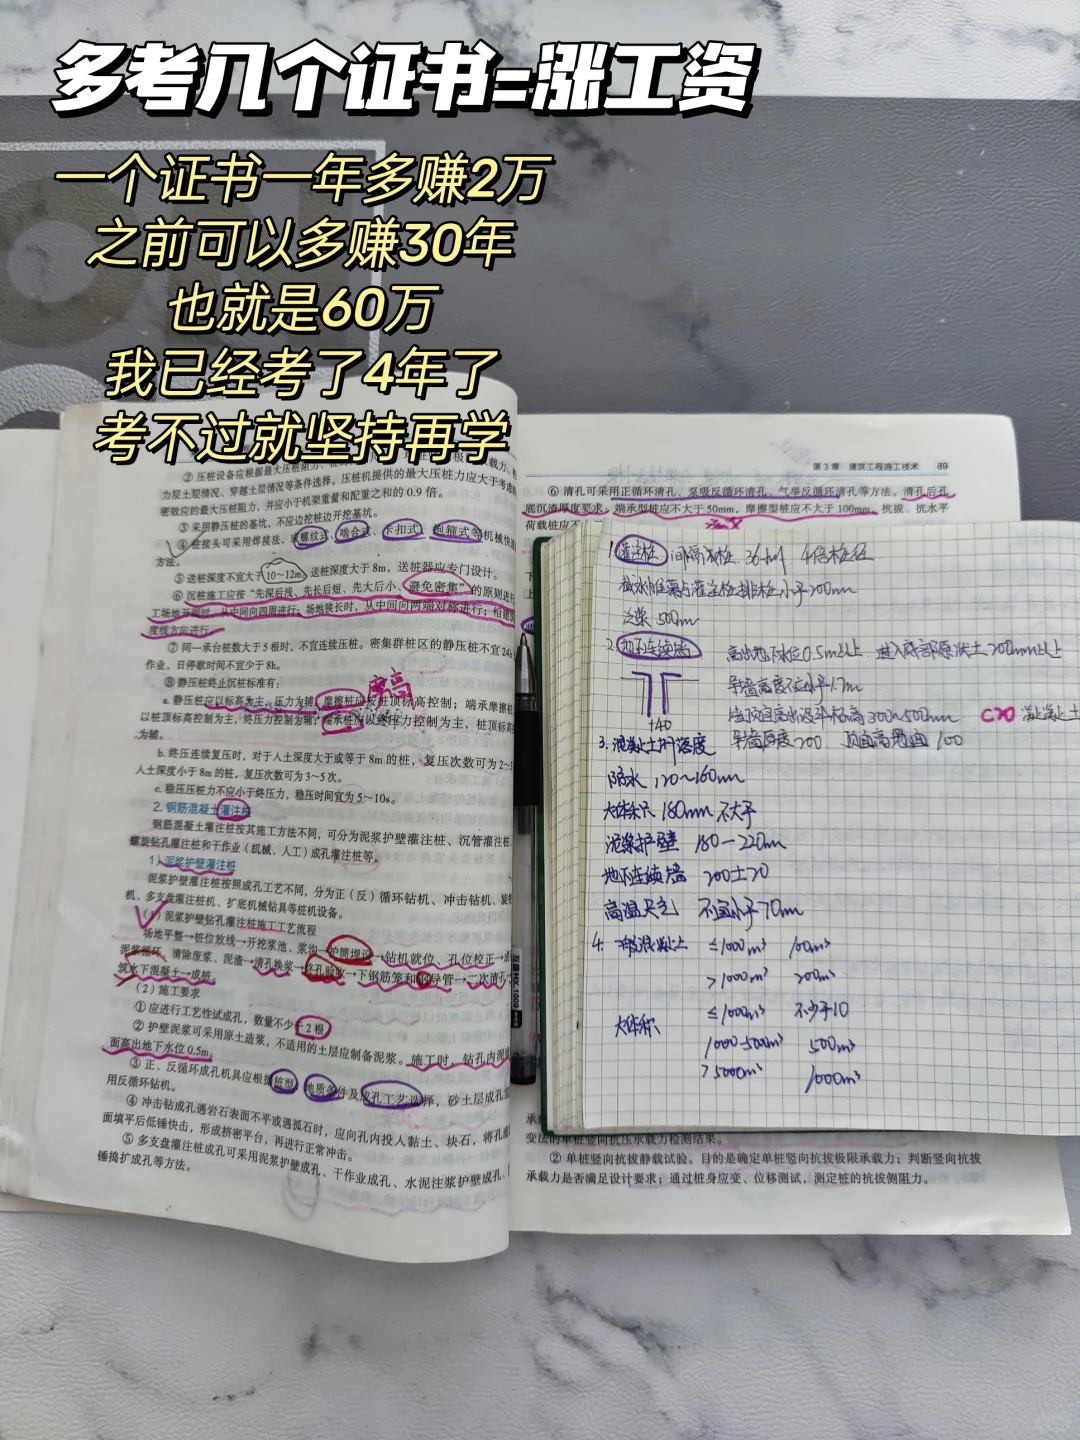 多考几个证书=涨工资
一个证书一年多赚2万
之前可以多赚30年
也就是60万
我已经考了4年了
考不过就坚持再学
② 压桩设备应根据最大压桩阻力、
力层土层情况、穿越土层情况等条件选择。压桩机提供的最大压桩力应大于考虑
密效应的最大压桩阻力，并应小于机架重量和配重之和的0.9倍。
③ 采用静压桩的基坑，不应边挖桩边开挖基坑。
④ 桩接头可采用焊接法，或螺纹式、啮合式、卡扣式、抱箍式等机械快速
方法。
⑤ 送桩深度不宜大于10~12m。送桩深度大于8m，送桩器应专门设计。
⑥ 沉桩施工应按“先深后浅、先长后短、先大后小、避免密集”的原则进行
工场地开阔时，从中间向四周进行；场地狭长时，从中间向两端对称进行；
度线方向进行。
⑦ 同一承台桩数大于5根时，不宜连续压桩。密集群桩区的静压桩不宜24
作业，日停歇时间不宜少于8h。
⑧ 静压桩终止沉桩标准有：
摩高
a. 静压桩应以标高为主，压力为辅。摩擦桩应按桩顶标高控制；端承摩擦桩
以桩顶标高控制为主，终压力控制为辅；端承桩应以终压力控制为主，桩顶标高
为辅。
b. 终压连续复压时，对于入土深度大于或等于8m的桩，复压次数可为2~
入土深度小于8m的桩，复压次数可为3~5次。
c. 稳压压桩力不应小于终压力，稳压时间宜为5~10s。
2. 钢筋混凝土灌注桩
钢筋混凝土灌注桩按其施工方法不同，可分为泥浆护壁灌注桩、沉管灌注桩
螺旋钻孔灌注桩和干作业（机械、人工）成孔灌注桩等。
1）泥浆护壁灌注桩
泥浆护壁灌注桩按照成孔工艺不同，分为正（反）循环钻机、冲击钻机、旋挖
机、多支盘灌注桩机、扩底机械钻具等桩机设备。
（1）泥浆护壁钻孔灌注桩施工工艺流程
场地平整→桩位放线→开挖浆池、浆沟→护筒埋设→钻机就位、孔位校正→成
泥浆循环、清除废浆、泥渣→清孔换浆→终孔验收→下钢筋笼和钢导管→二次清孔
筑水下混凝土→成桩。
（2）施工要求
① 应进行工艺性试成孔，数量不少于2根
② 护壁泥浆可采用原土造浆，不适用的土层应制备泥浆。施工时，钻孔内泥浆
面高出地下水位0.5m。
③ 正、反循环成孔机具应根据桩型、地质条件及成孔工艺选择，砂土层成孔宜
用反循环钻机。
④ 冲击钻成孔遇岩石表面不平或遇孤石时，应向孔内投入黏土、块石，将孔底
面填平后低锤快击，形成挤密平台，再进行正常冲击。
⑤ 多支盘灌注桩成孔可采用泥浆护壁成孔、干作业成孔、水泥注浆护壁成孔、
锤捣扩成孔等方法。
第3章 建筑工程施工技术 89
⑥ 清孔可采用正循环清孔、泵吸反循环清孔、气举反循环清孔等方法。清孔后孔
底沉渣厚度要求：端承型桩应不大于50mm，摩擦型桩应不大于100mm，抗拔、抗水平
荷载桩应不
1. 灌注桩 间隔成桩 36h 4倍桩径
截水帷幕与灌注桩排桩小于200mm
泛浆 500mm
2. 地下连续墙 高出地下水位0.5m以上 进入底部原状土200mm以上
导墙高度不应小于1.2m
墙顶宜高出设计标高300~500mm C20 混凝土
导墙厚度200 顶宜高地面100
+40
3. 混凝土坍落度
防水 120~160mm
大体积 180mm 不大于
泥浆护壁 180—220mm
地下连续墙 200±20
高温天气 不宜小于70mm
4. 一般混凝土 ≤1000m³ 100m³
>1000m³ 200m³
大体积 ≤1000m³ 不少于10
1000-5000m³ 500m³
>5000m³ 1000m³
变法的单桩竖向抗压承载力检测结果。
② 单桩竖向抗拔静载试验。目的是确定单桩竖向抗拔极限承载力；判断竖向抗拔
承载力是否满足设计要求；通过桩身应变、位移测试，测定桩的抗拔侧阻力。